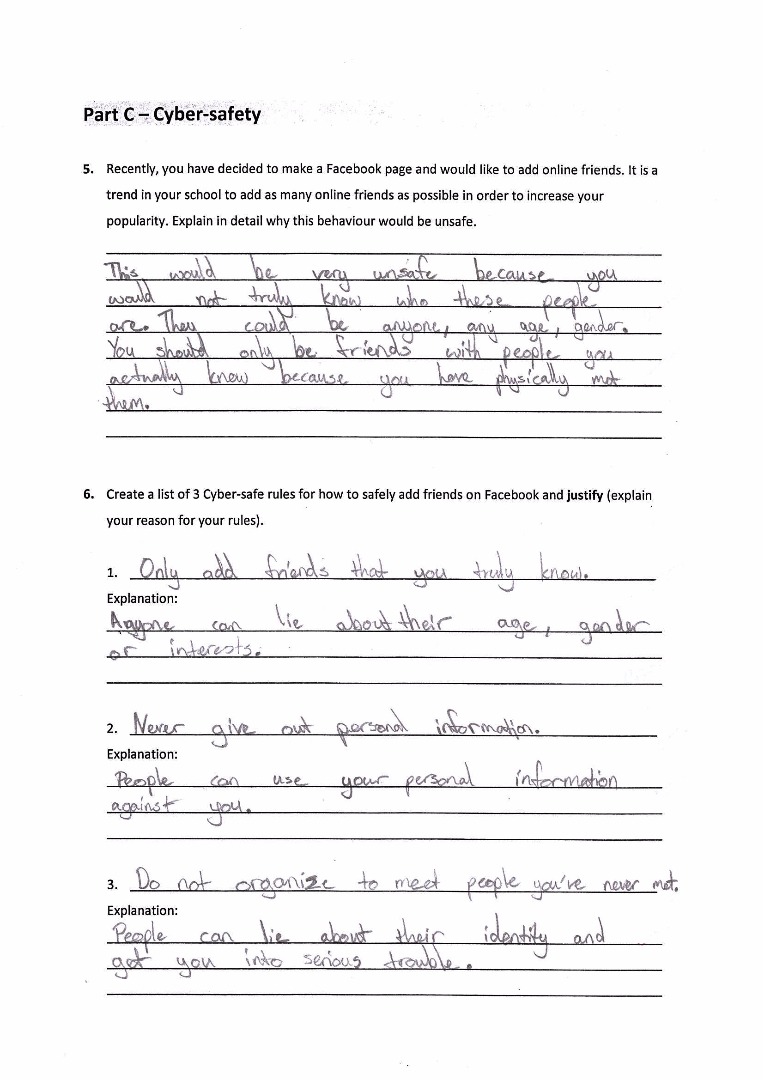 Part C – Cyber-safety
5. Recently, you have decided to make a Facebook page and would like to add online friends. It is a
trend in your school to add as many online friends as possible in order to increase your
popularity. Explain in detail why this behaviour would be unsafe.
This would be very unsafe because you
would not truly know who these people
are. They could be anyone, any age, gender.
You should only be friends with people you
actually know because you have physically met
them.
6. Create a list of 3 Cyber-safe rules for how to safely add friends on Facebook and justify (explain
your reason for your rules).
1. Only add friends that you truly know.
Explanation:
Anyone can lie about their age, gender
or interests.
2. Never give out personal information.
Explanation:
People can use your personal information
against you.
3. Do not organize to meet people you've never met.
Explanation:
People can lie about their identity and
get you into serious trouble.